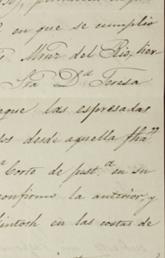 en que se cumplio
Mnz del Rio, her
Sta Da Teresa
que las espresadas
os desde aquella fha
Corte de Just.a en su
confirmo la anterior y
intosh en las costas de